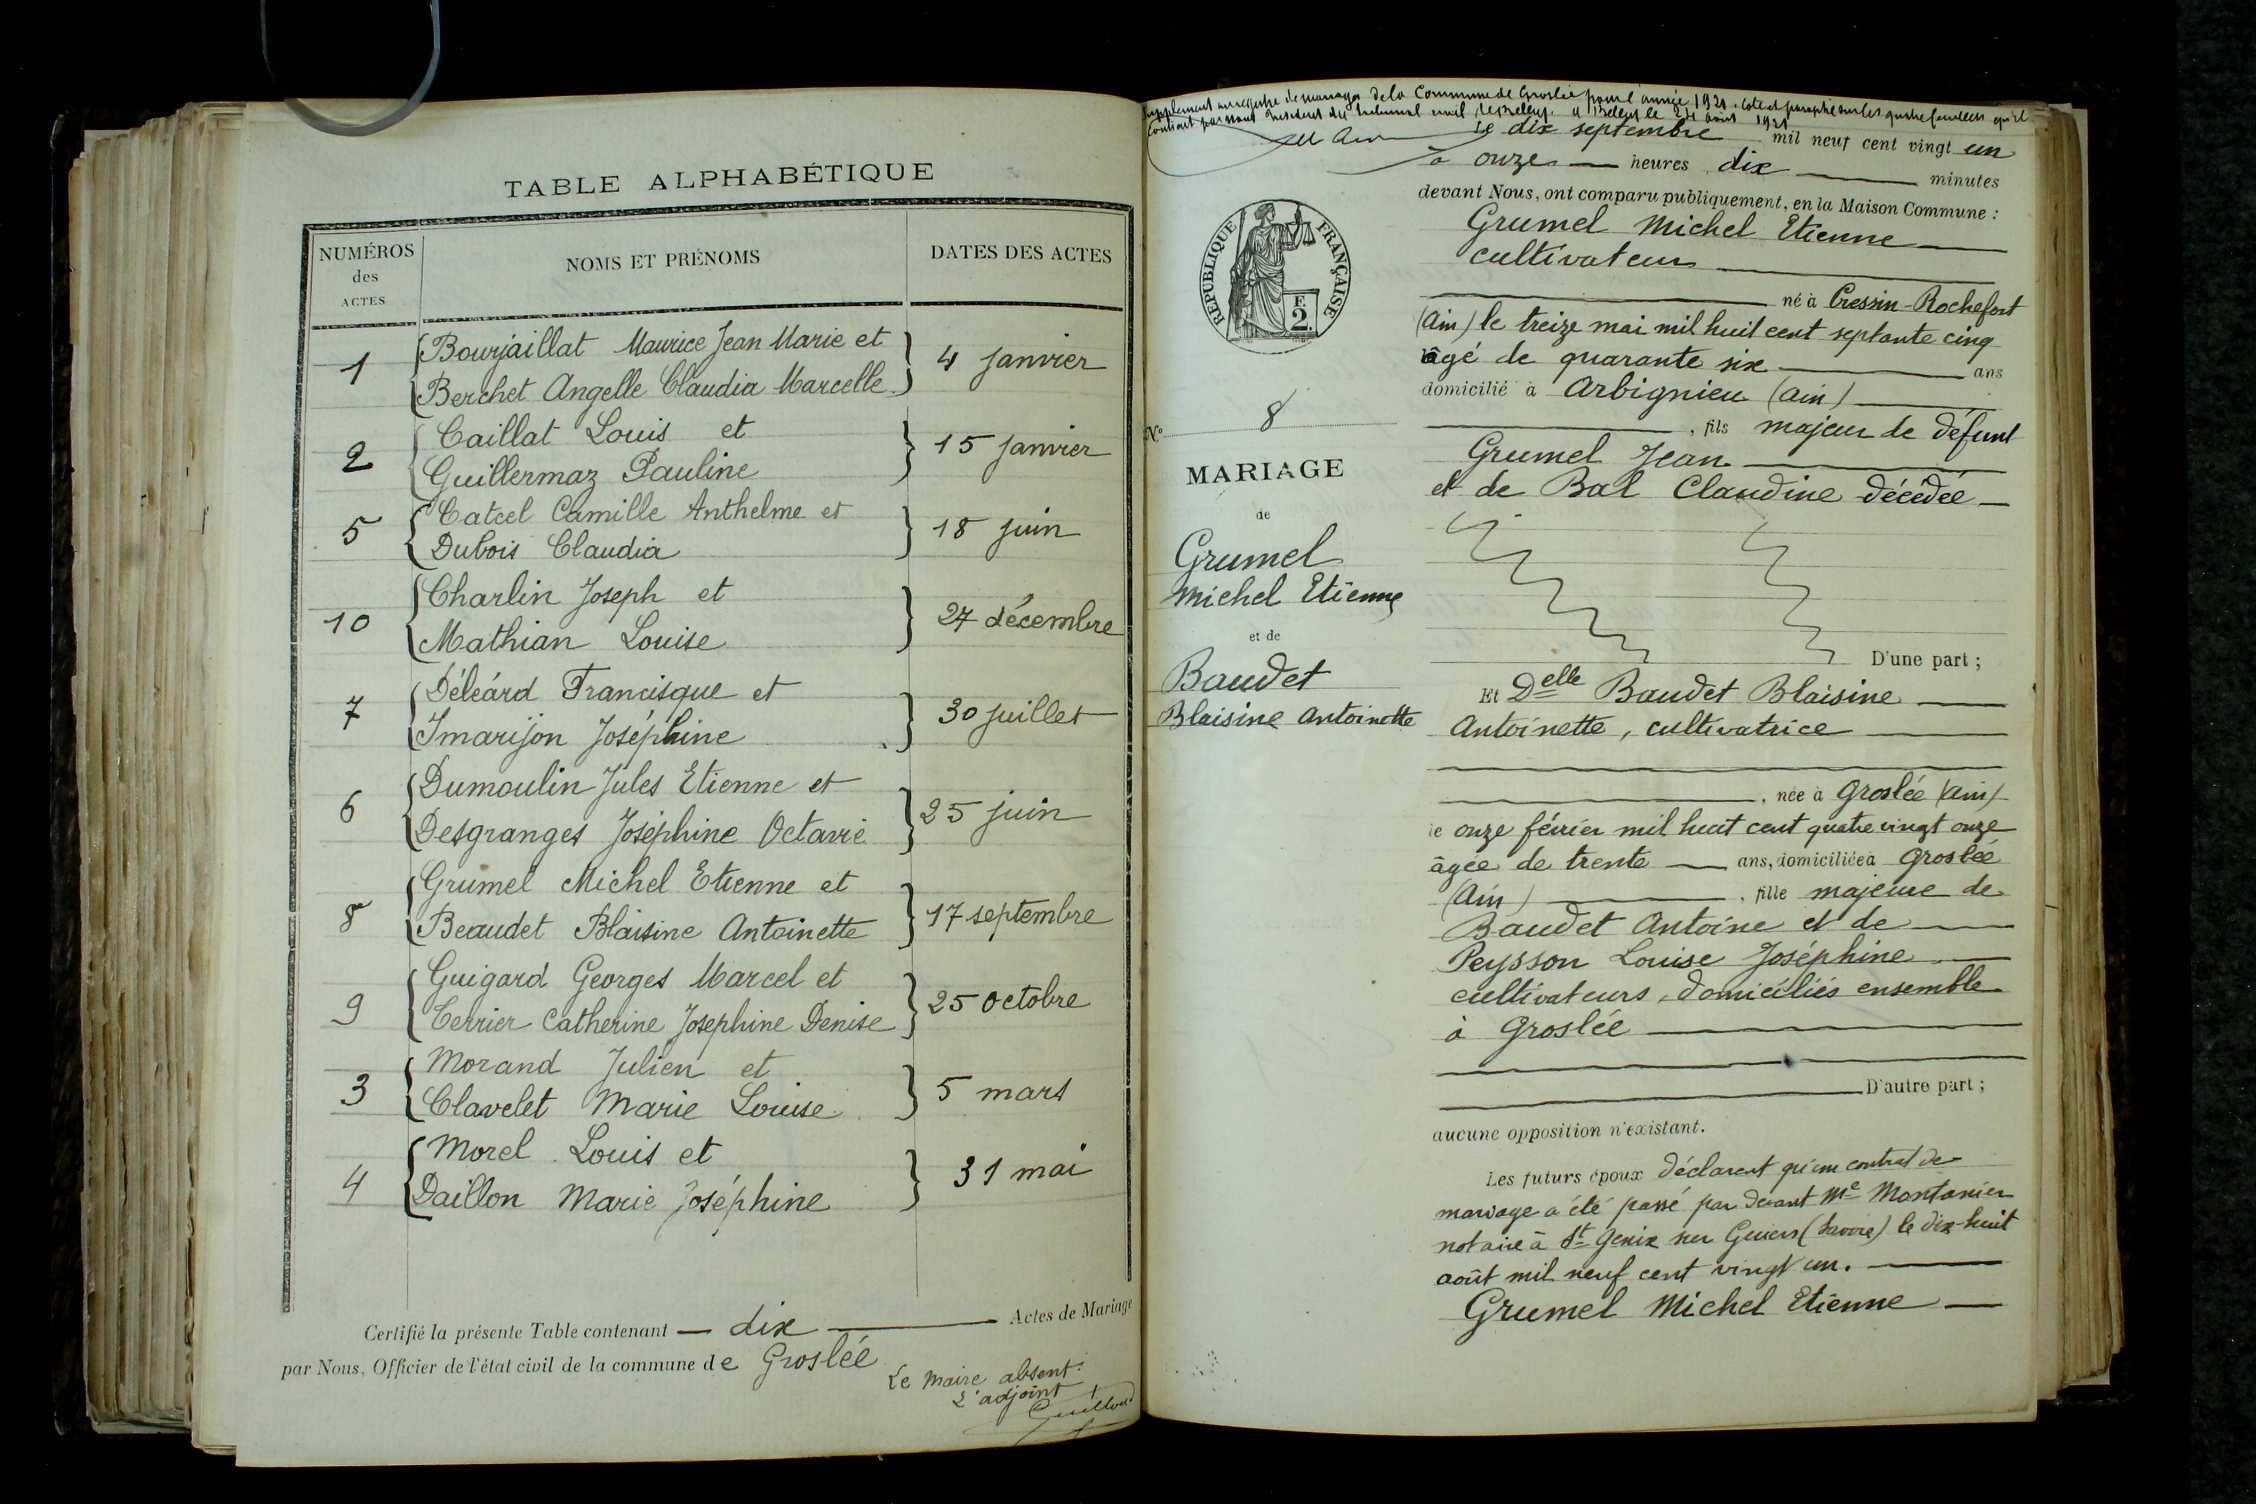 TABLE ALPHABÉTIQUE
NUMÉROS
des
ACTES
NOMS ET PRÉNOMS
DATES DES ACTES
1 Bourjaillat Maurice Jean Marie et
Berchet Angelle Claudia Marcelle 4 janvier
2 Caillat Louis et
Guillermaz Pauline 15 janvier
5 Catcel Camille Anthelme et
Dubois Claudia 18 juin
10 Charlin Joseph et
Mathian Louise 27 décembre
7 Déléard Francisque et
Imarijon Joséphine 30 juillet
6 Dumoulin Jules Etienne et
Desgranges Joséphine Octavie 25 juin
8 Grumel Michel Etienne et
Beaudet Blaisine Antoinette 17 septembre
9 Guigard Georges Marcel et
Terrier Catherine Josephine Denise 25 octobre
3 Morand Julien et
Clavelet Marie Louise 5 mars
4 Morel Louis et
Daillon Marie Joséphine 31 mai
Certifié la présente Table contenant dix Actes de Mariage
par Nous, Officier de l'état civil de la commune de Groslée
Le Maire absent
L'adjoint
supplément au registre de mariages de la Commune de Groslée pour l'année 1921. Coté et paraphé sur les quatre feuillets qu'il
contient par nous Président du tribunal civil de Belley. à Belley le 24 août 1921
Le dix septembre mil neuf cent vingt un
à onze heures dix minutes
devant Nous, ont comparu publiquement, en la Maison Commune :
Grumel Michel Etienne
cultivateur
né à Cressin-Rochefort
(Ain) le treize mai mil huit cent septante cinq
âgé de quarante six ans
domicilié à Arbignieu (Ain)
, fils majeur de défunt
Grumel Jean
et de Bal Claudine décédée
D'une part ;
Et Delle Baudet Blaisine
Antoinette, cultivatrice
, née à Groslée (Ain)
le onze février mil huit cent quatre vingt onze
âgée de trente ans, domiciliée à Groslée
(Ain) , fille majeure de
Baudet Antoine et de
Peysson Louise Joséphine
cultivateurs, domiciliés ensemble
à Groslée
D'autre part ;
aucune opposition n'existant.
Les futurs époux déclarent qu'un contrat de
mariage a été passé par devant Me Montanier
notaire à St Genix sur Guiers (Savoie) le dix-huit
août mil neuf cent vingt un.
Grumel Michel Etienne
RÉPUBLIQUE FRANÇAISE
F.
2.
N° 8
MARIAGE
de
Grumel
Michel Etienne
et de
Baudet
Blaisine Antoinette